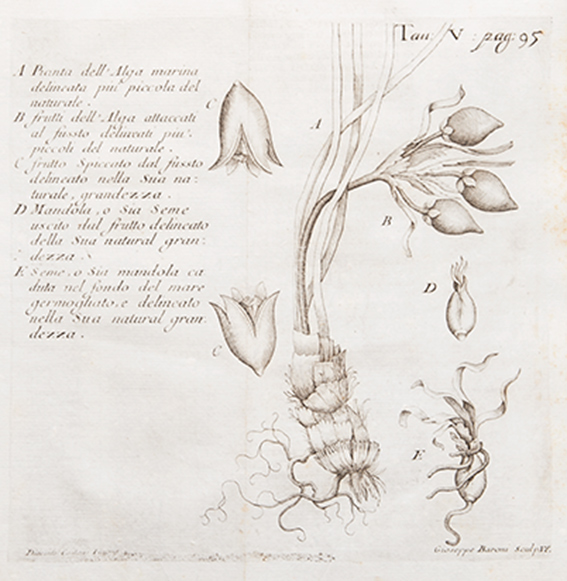 Tau: V : pag: 95
A Pianta dell'Alga marina
delineata piu piccola del
naturale.
B frutti dell'Alga attaccati
al fussto delineati piu
piccoli del naturale.
C frutto Spiccato dal fussto
delineato nella Sua na:
turale grandezza.
D Mandola, o Sia Seme
uscito dal frutto delineato
della Sua natural gran:
dezza
E Seme, o Sia mandola ca
duta nel fondo del mare
germogliato, e delineato
nella Sua natural gran
dezza.
C
A
B
D
C
E
Giuseppe Baroni Sculp